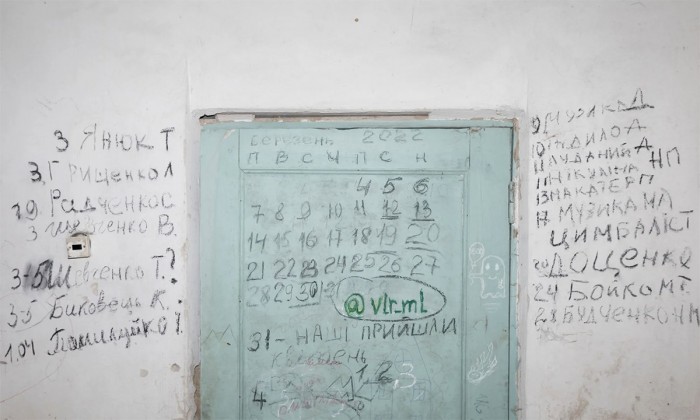 3 ЯНЮК Т
3 Грищенко Л
19 Радченко С
3 шевченко В.
3-5 Шевченко Т.?
3-5 Биковець К.
1.04
березень 2022
П В С Ч П С Н
4 5 6
7 8 9 10 11 12 13
14 15 16 17 18 19 20
21 22 23 24 25 26 27
28 29 30
@vlr.ml
31 - НАШІ ПРИЙШЛИ
квітень
1 2 3
4
9 МУЗИКА Д
11 ЛУДАНИЙ А
МУЗИКА МЛ
ЦИМБАЛІСТ
20 ДОЦЕНКО
24 БОЙКО МГ
28 БУДЧЕНКО НМ